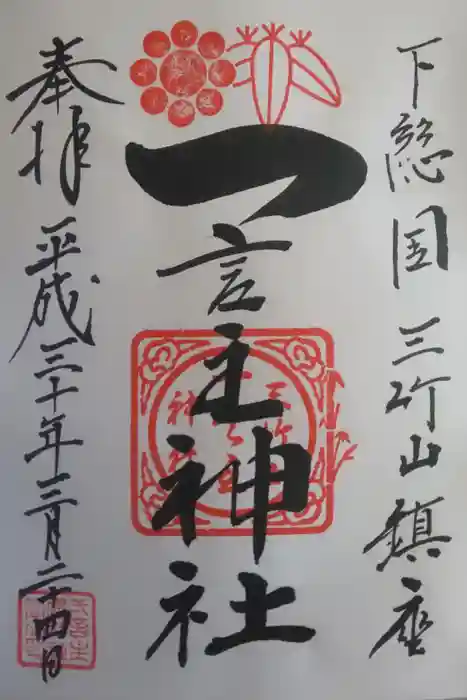 下総国三竹山鎮座
一言主神社
奉拝平成三十年三月二十四日